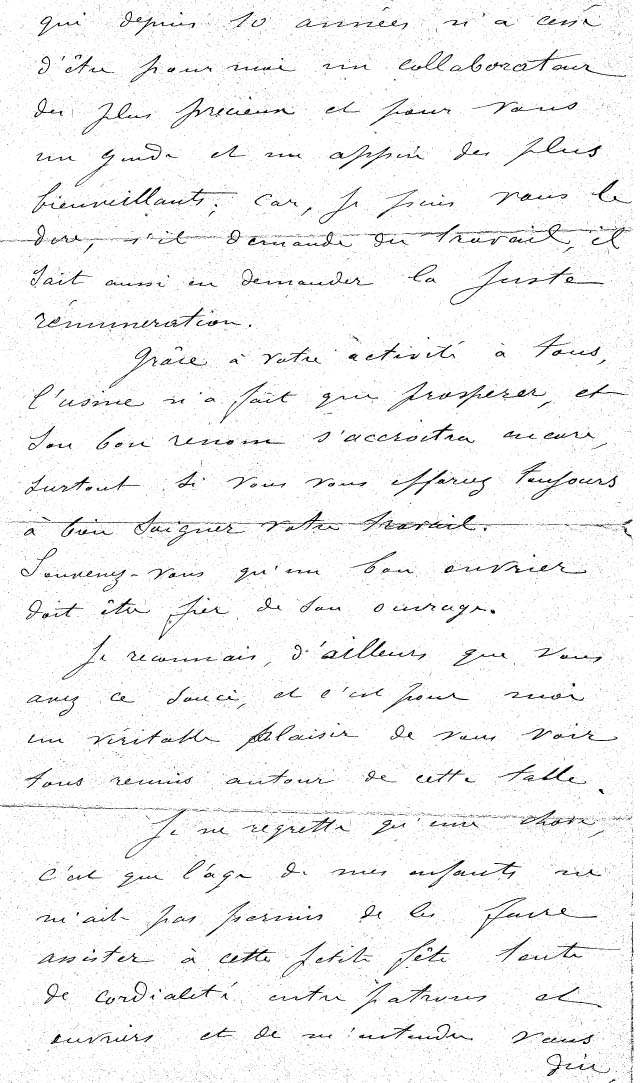 qui depuis 10 années n'a cessé
d'être pour moi un collaborateur
des plus précieux et pour vous
un guide et un appui des plus
bienveillants; car, je puis vous le
dire, s'il demande du travail, il
sait aussi en demander la juste
rémunération.
Grâce à votre activité à tous,
l'usine n'a fait que prospérer, et
son bon renom s'accroitra encore,
surtout si vous vous efforcez toujours
à bien soigner votre travail.
Souvenez-vous qu'un bon ouvrier
doit être fier de son ouvrage.
Je reconnais, d'ailleurs que vous
avez ce souci, et c'est pour moi
un véritable plaisir de vous voir
tous réunis autour de cette table.
Je ne regrette qu'une chose,
c'est que l'âge de mes enfants ne
m'ait pas permis de les faire
assister à cette petite fête toute
de cordialité entre patrons et
ouvriers et de m'entendre vous
dire,